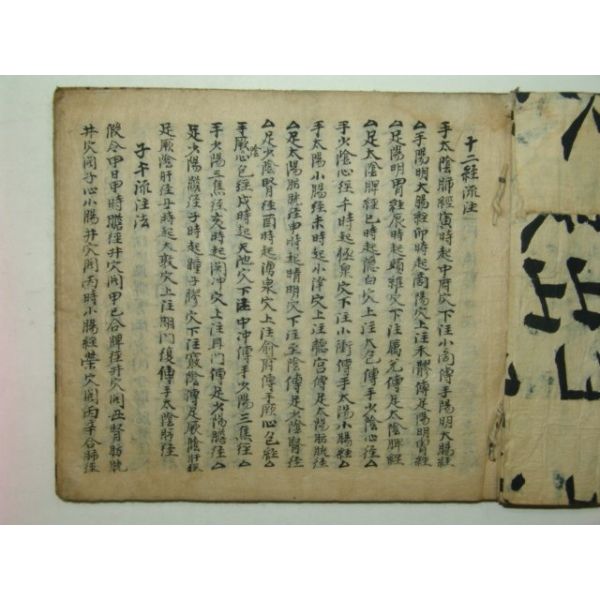 十二経流注
手太陰肺經寅時起中府穴下注小商傳手陽明大腸經
△手陽明大腸經卯時起商陽穴上注禾髎傳足陽明胃經
△足陽明胃經辰時起頭維穴下注厲兌傳足太陰脾經
△足太陰脾經巳時起隱白穴上注大包傳手少陰心經△
手少陰心經午時起極泉穴下注小衝傳手太陽小腸經△
手太陽小腸經未時起小津穴上注聽宮傳足太陽肪胱經
△足太陽肪胱經申時起睛明穴下注至陰傳足少陰腎經
△足少陰腎經酉時起湧泉穴上注俞府傳手厥心包經△
手厥陰心包經戌時起天池穴下注中冲傳手少陽三焦經△
手少陽三焦經亥時起関冲穴上注耳門傳足少陽膽經△
足少陽膽經子時起瞳子髎穴下注竅陰傳足厥陰肝經
足厥陰肝經丑時起大敦穴上注期門復傳手太陰肺經
子午流注法
假令甲日甲時膽經井穴開甲己合脾經井穴開丑腎肪胱
井穴開子心小腸井穴開丙時小腸經榮穴開丙辛合肺經